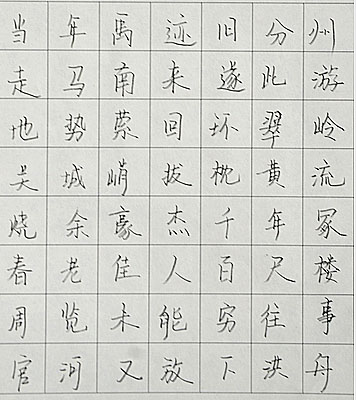 当年禹迹旧分州
走马南来遂此游
地势萦回环翠岭
吴城峭拔枕黄流
烧余豪杰千年冢
春老佳人百尺楼
周览未能穷往事
官河又放下洪舟